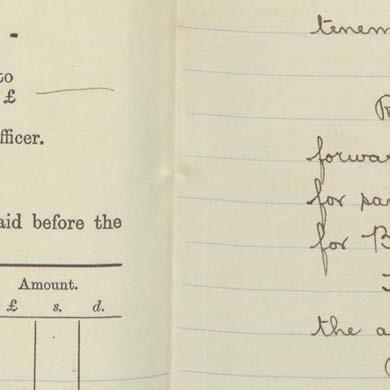 to
£
fficer.
aid before the
Amount.
£ s. d.
tenem
forwar
for pa
for B
the a